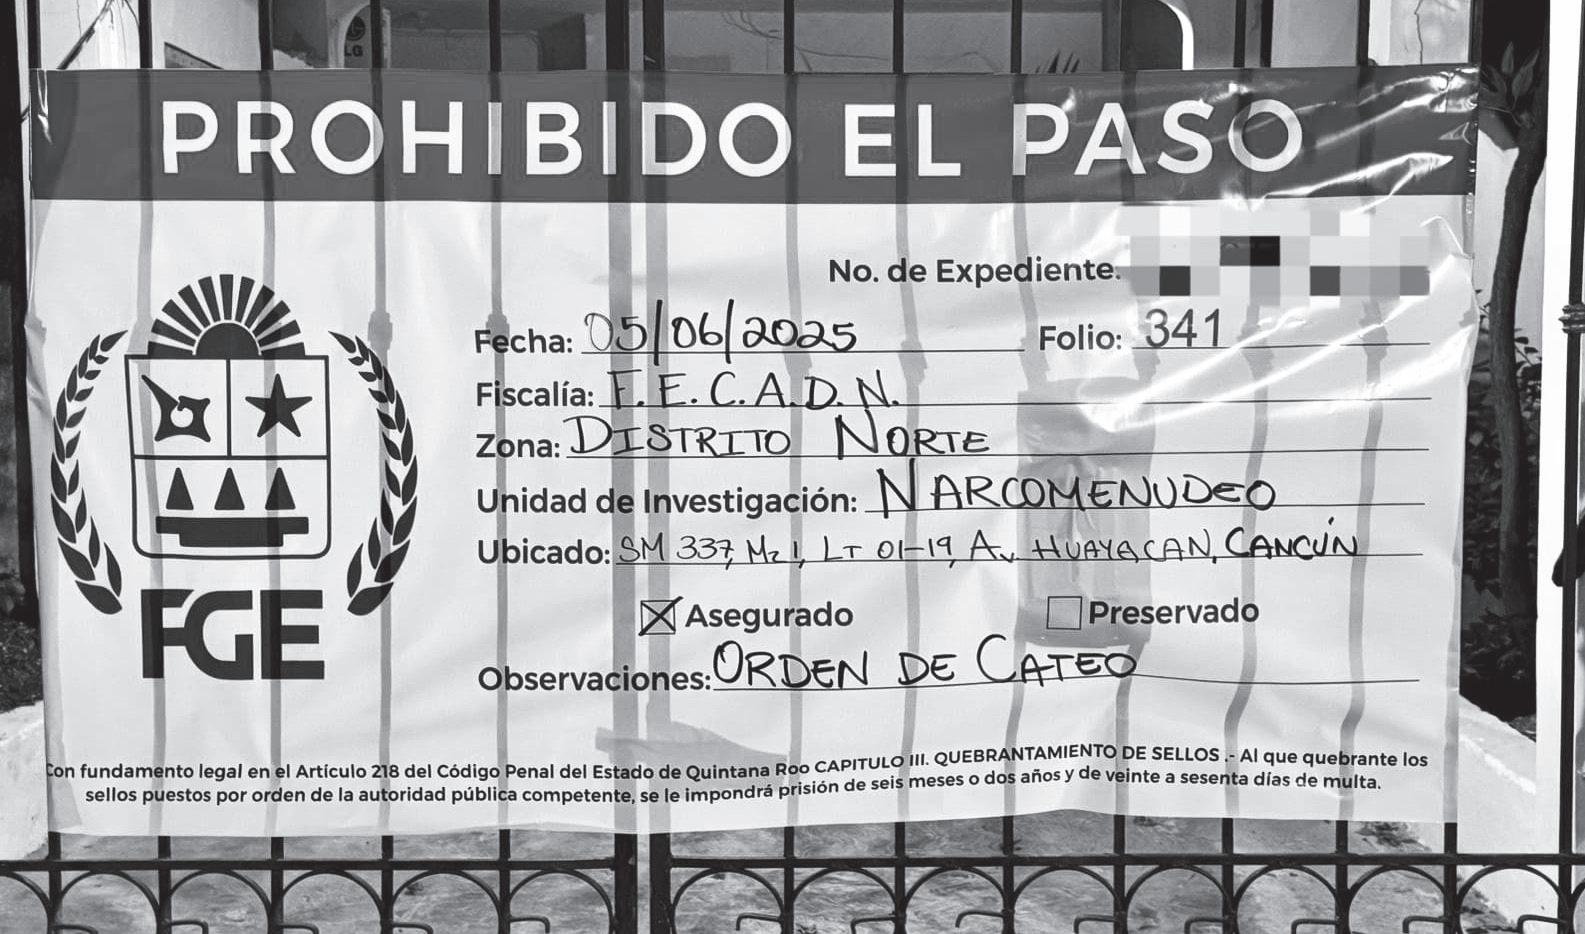 LG
PROHIBIDO EL PASO
No. de Expediente.
Fecha: 05/06/2025 Folio: 341
Fiscalía: F.E.C.A.D.N.
Zona: DISTRITO NORTE
Unidad de Investigación: NARCOMENUDEO
Ubicado: SM 337, Mz 1, LT 01-19, Av HUAYACAN, CANCÚN
Asegurado Preservado
Observaciones: ORDEN DE CATEO
FGE
Con fundamento legal en el Artículo 218 del Código Penal del Estado de Quintana Roo CAPITULO III. QUEBRANTAMIENTO DE SELLOS .- Al que quebrante los
sellos puestos por orden de la autoridad pública competente, se le impondrá prisión de seis meses o dos años y de veinte a sesenta días de multa.